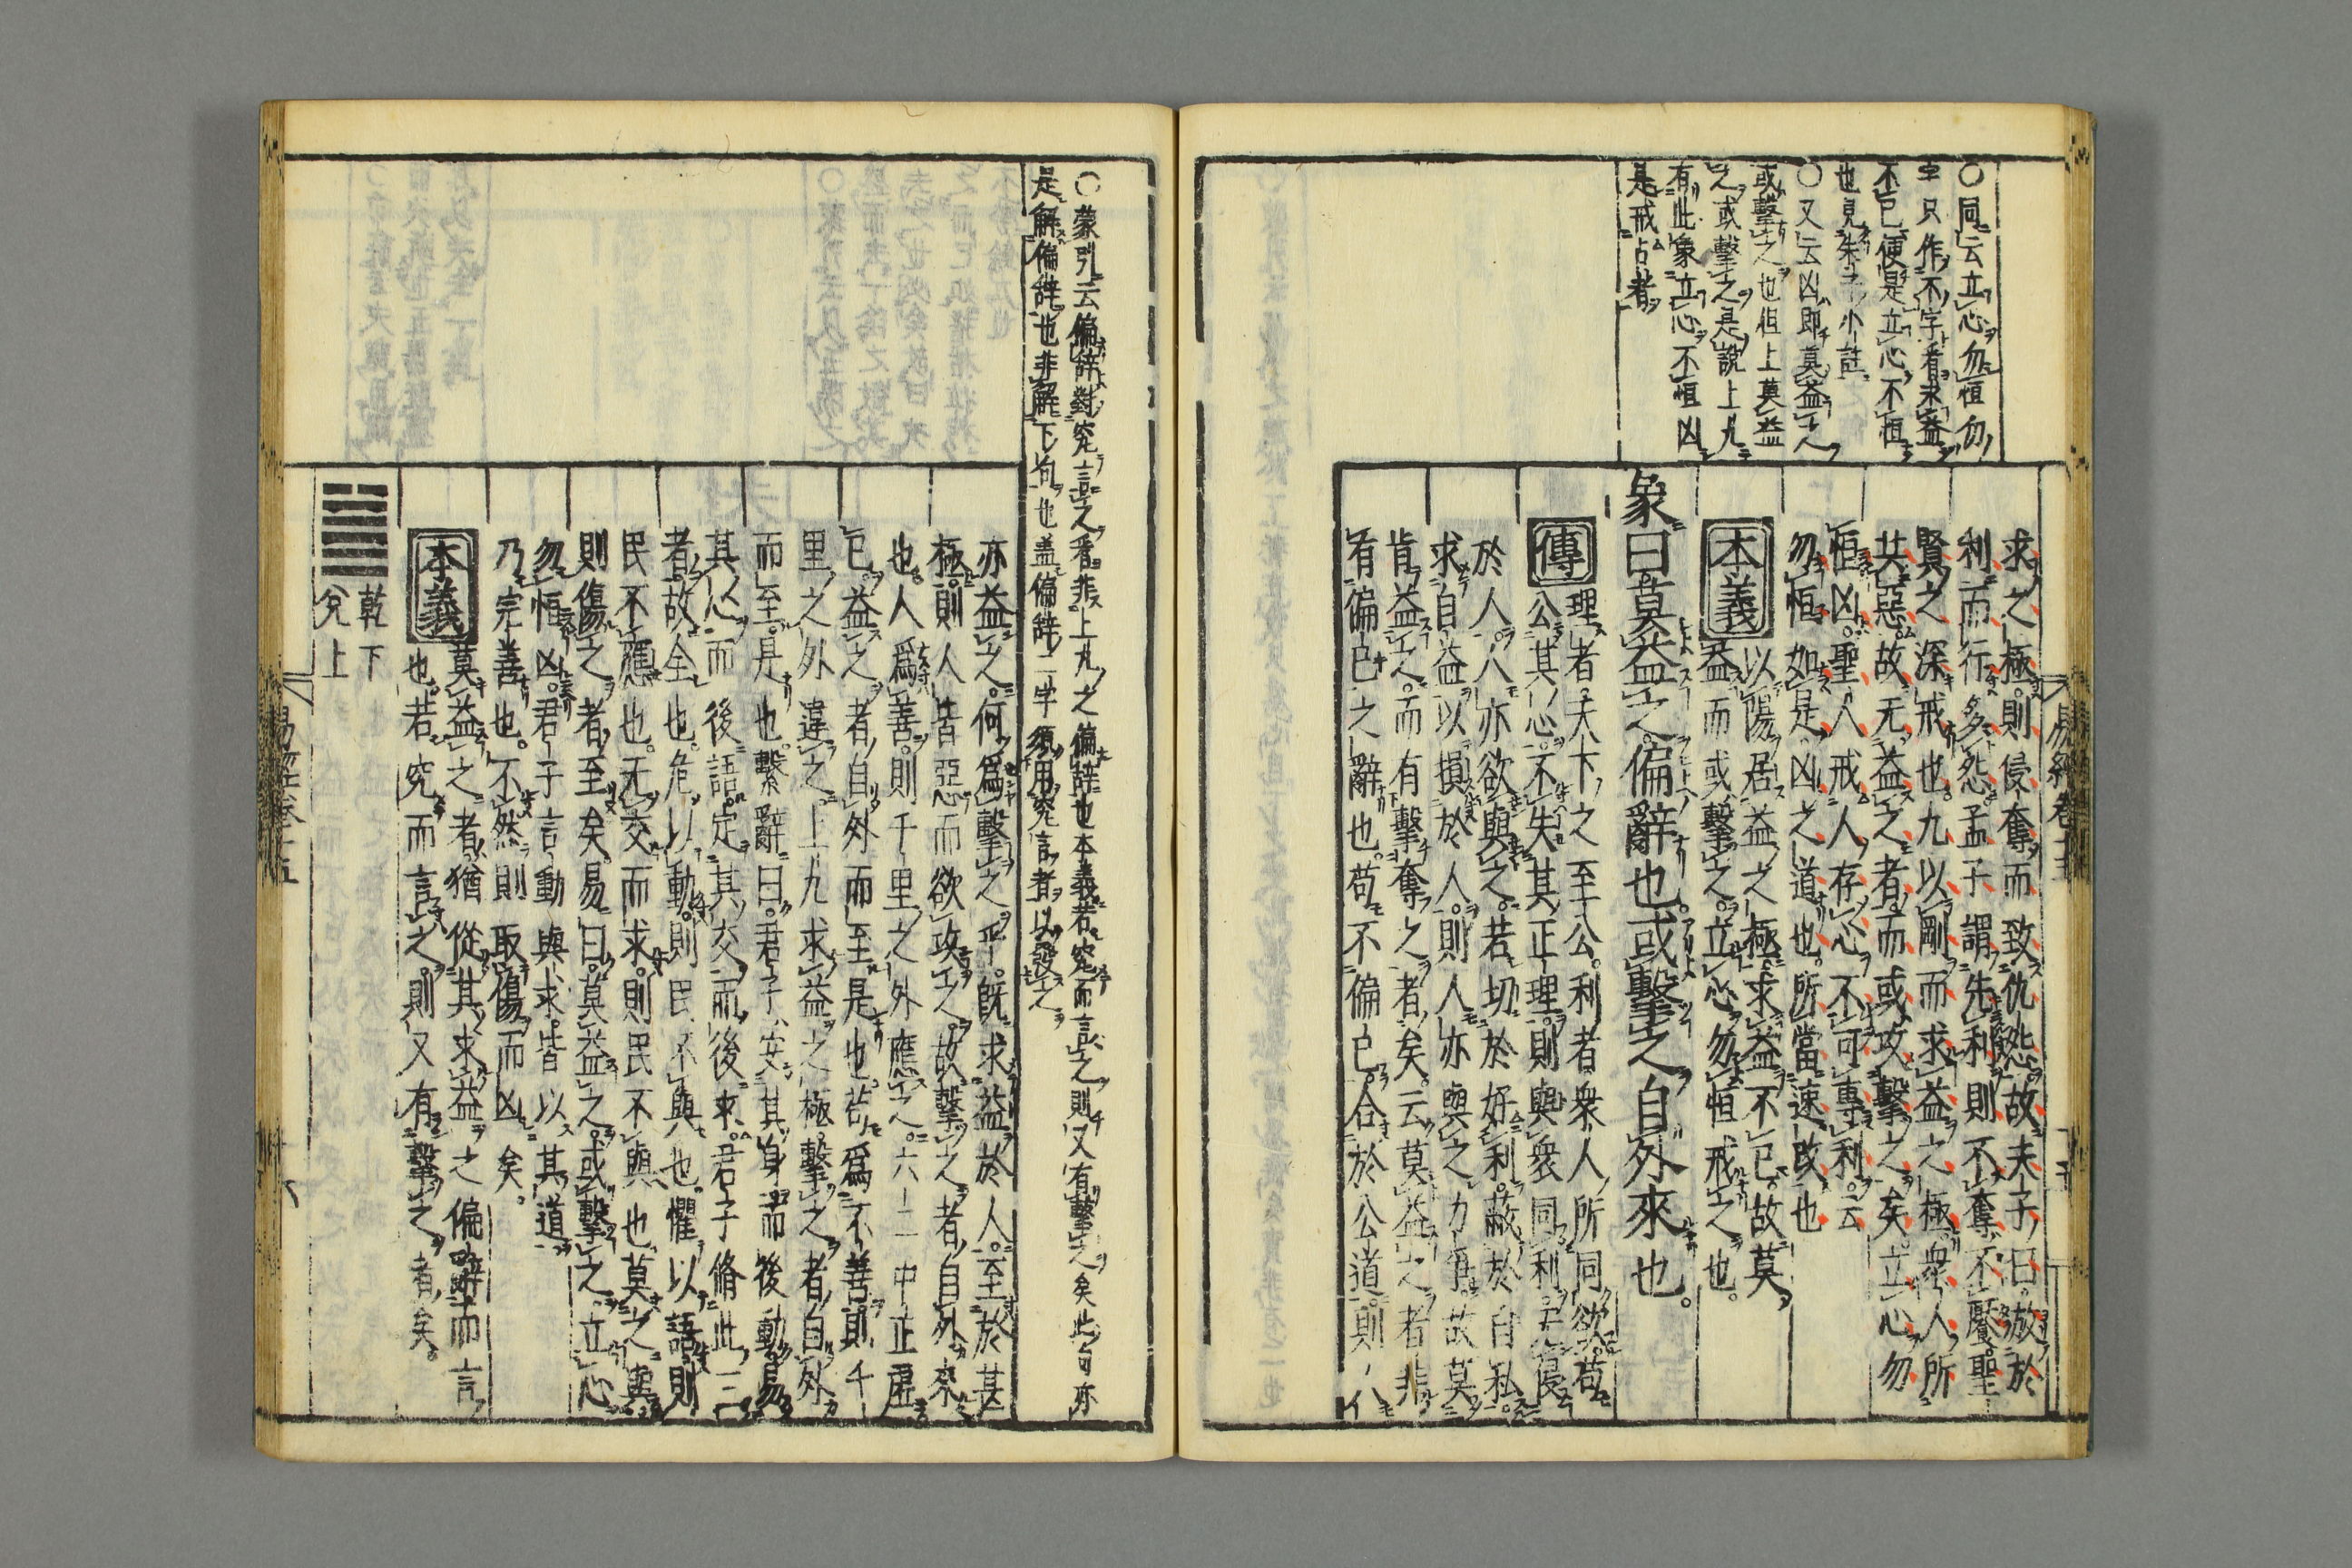 ○同云立心勿恒勿
字只作不字看求益
不已便是立心不恒
也見朱子小註
○又云凶即莫益之
或擊之也但上莫益
之或擊之是說上九
有此象立心不恒凶
是戒占者
求之極則侵奪而致仇怨故夫子曰放於
利而行多怨孟子謂先利則不奪不饜聖
賢之深戒也九以剛而求益之極衆人所
共惡故无益之者而或攻擊之矣立心勿
恒凶聖人戒人存心不可專利云
勿恒如是凶之道也所當速改也
本義
以陽居益之極求益不已故莫
益而或擊之立心勿恒戒之也
象曰莫益之偏辭也或擊之自外來也
傳
理者天下之至公利者衆人所同欲苟
公其心不失其正理則與衆同利无侵
於人人亦欲與之若切於好利蔽於自私
求自益以損於人則人亦與之力爭故莫
肯益之而有擊奪之者矣云莫益之者非
有偏已之辭也苟不偏已合於公道則人
易經卷十五
○蒙引云偏辞對究言之看非上九之偏辞也本義若究而言之則又有擊之矣此句亦
是解偏辞也非解下句也盖偏辞二字須用究言者以發之
亦益之何爲擊之乎既求益於人至於甚
極則人皆惡而欲攻之故擊之者自外來
也人爲善則千里之外應之六二中正虛
已益之者自外而至是也苟爲不善則千
里之外違之上九求益之極擊之者自外
而至是也繫辭曰君子安其身而後動易
其心而後語定其交而後求君子脩此三
者故全也危以動則民不與也懼以語則
民不應也无交而求則民不與也莫之與
則傷之者至矣易曰莫益之或擊之立心
勿恒凶君子言動與求皆以其道
乃完善也不然則取傷而凶矣
本義
莫益之者猶從其求益之偏辭而言
也若究而言之則又有擊之者矣
乾下
兌上
易經卷十五
六